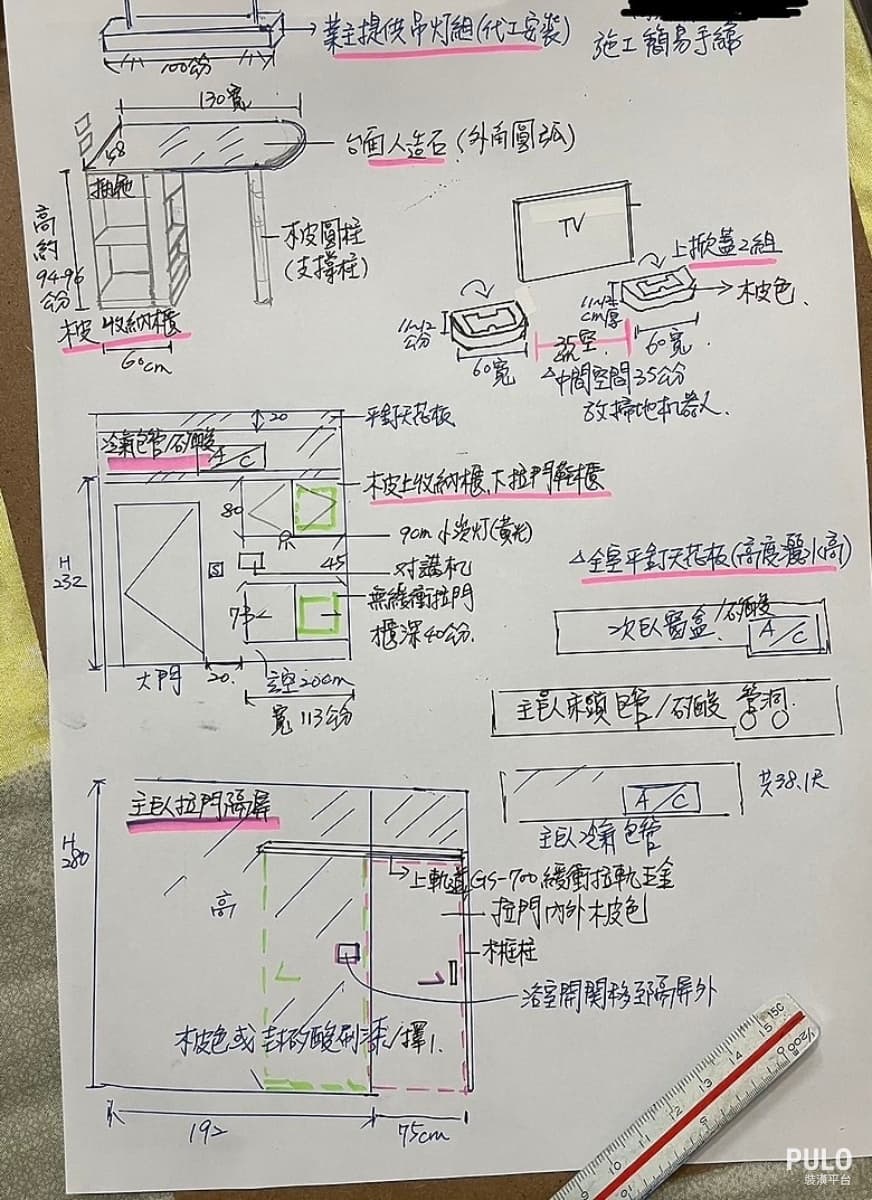 業主提供吊灯組(代工安裝)
施工簡易手繪
100公分
130寬
58
台面人造石(外角圓弧)
抽屜
高約94-96公分
木皮圓柱
(支撐柱)
木皮收納櫃
60cm
TV
上掀蓋2組
木皮色
11-12公分
11-12cm厚
60寬
35空
60寬
△中間空間35公分
放掃地机器人.
20
平釘天花板
冷氣包管/矽酸
A/C
木皮上收納櫃.大拉門鞋櫃
80
9cm小崁灯(黃光)
H232
S
45
对講机
73
無緩衝拉門
櫃深40公分.
大門
20.
空20cm
寬113公分
△全室平釘天花板(高度灑水高)
次臥窗盒/矽酸
A/C
主臥床頭包管/矽酸 管洞
A/C
共38.1尺
主臥冷氣包管
主臥拉門隔屏
H280
高
上軌道GS-700緩衝拉軌五金
拉門內外木皮色
木框柱
浴室開關移至隔屏外
木皮色或封矽酸刷漆/擇1.
192
75cm
15C
15
14
13
12
11
10
9
1/200m
PULO
裝潢平台